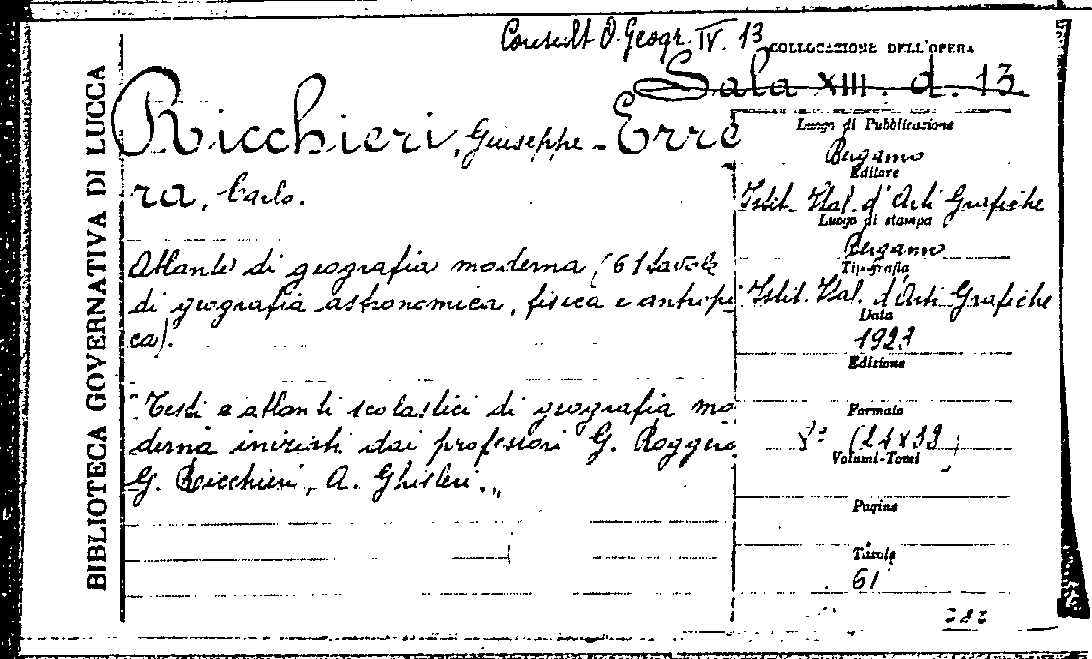 Consult. O. Geogr. IV. 13
COLLOCAZIONE DELL'OPERA
Sala XIII. d. 13.
BIBLIOTECA GOVERNATIVA DI LUCCA
Ricchieri, Giuseppe - Erre
ra, Carlo.
Atlante di geografia moderna (61 tavole
di geografia astronomica, fisica e antropi
ca).
"Testi e atlanti scolastici di geografia mo
derna iniziati dai professori G. Roggero
G. Ricchieri, A. Ghisleri."
Luogo di Pubblicazione
Bergamo
Editore
Istit. Ital. d'Arti Grafiche
Luogo di stampa
Bergamo
Tipografia
Istit. Ital. d'Arti Grafiche
Data
1923
Edizione
Formato
8° (24x33)
Volumi-Tomi
Pagine
Tavole
61